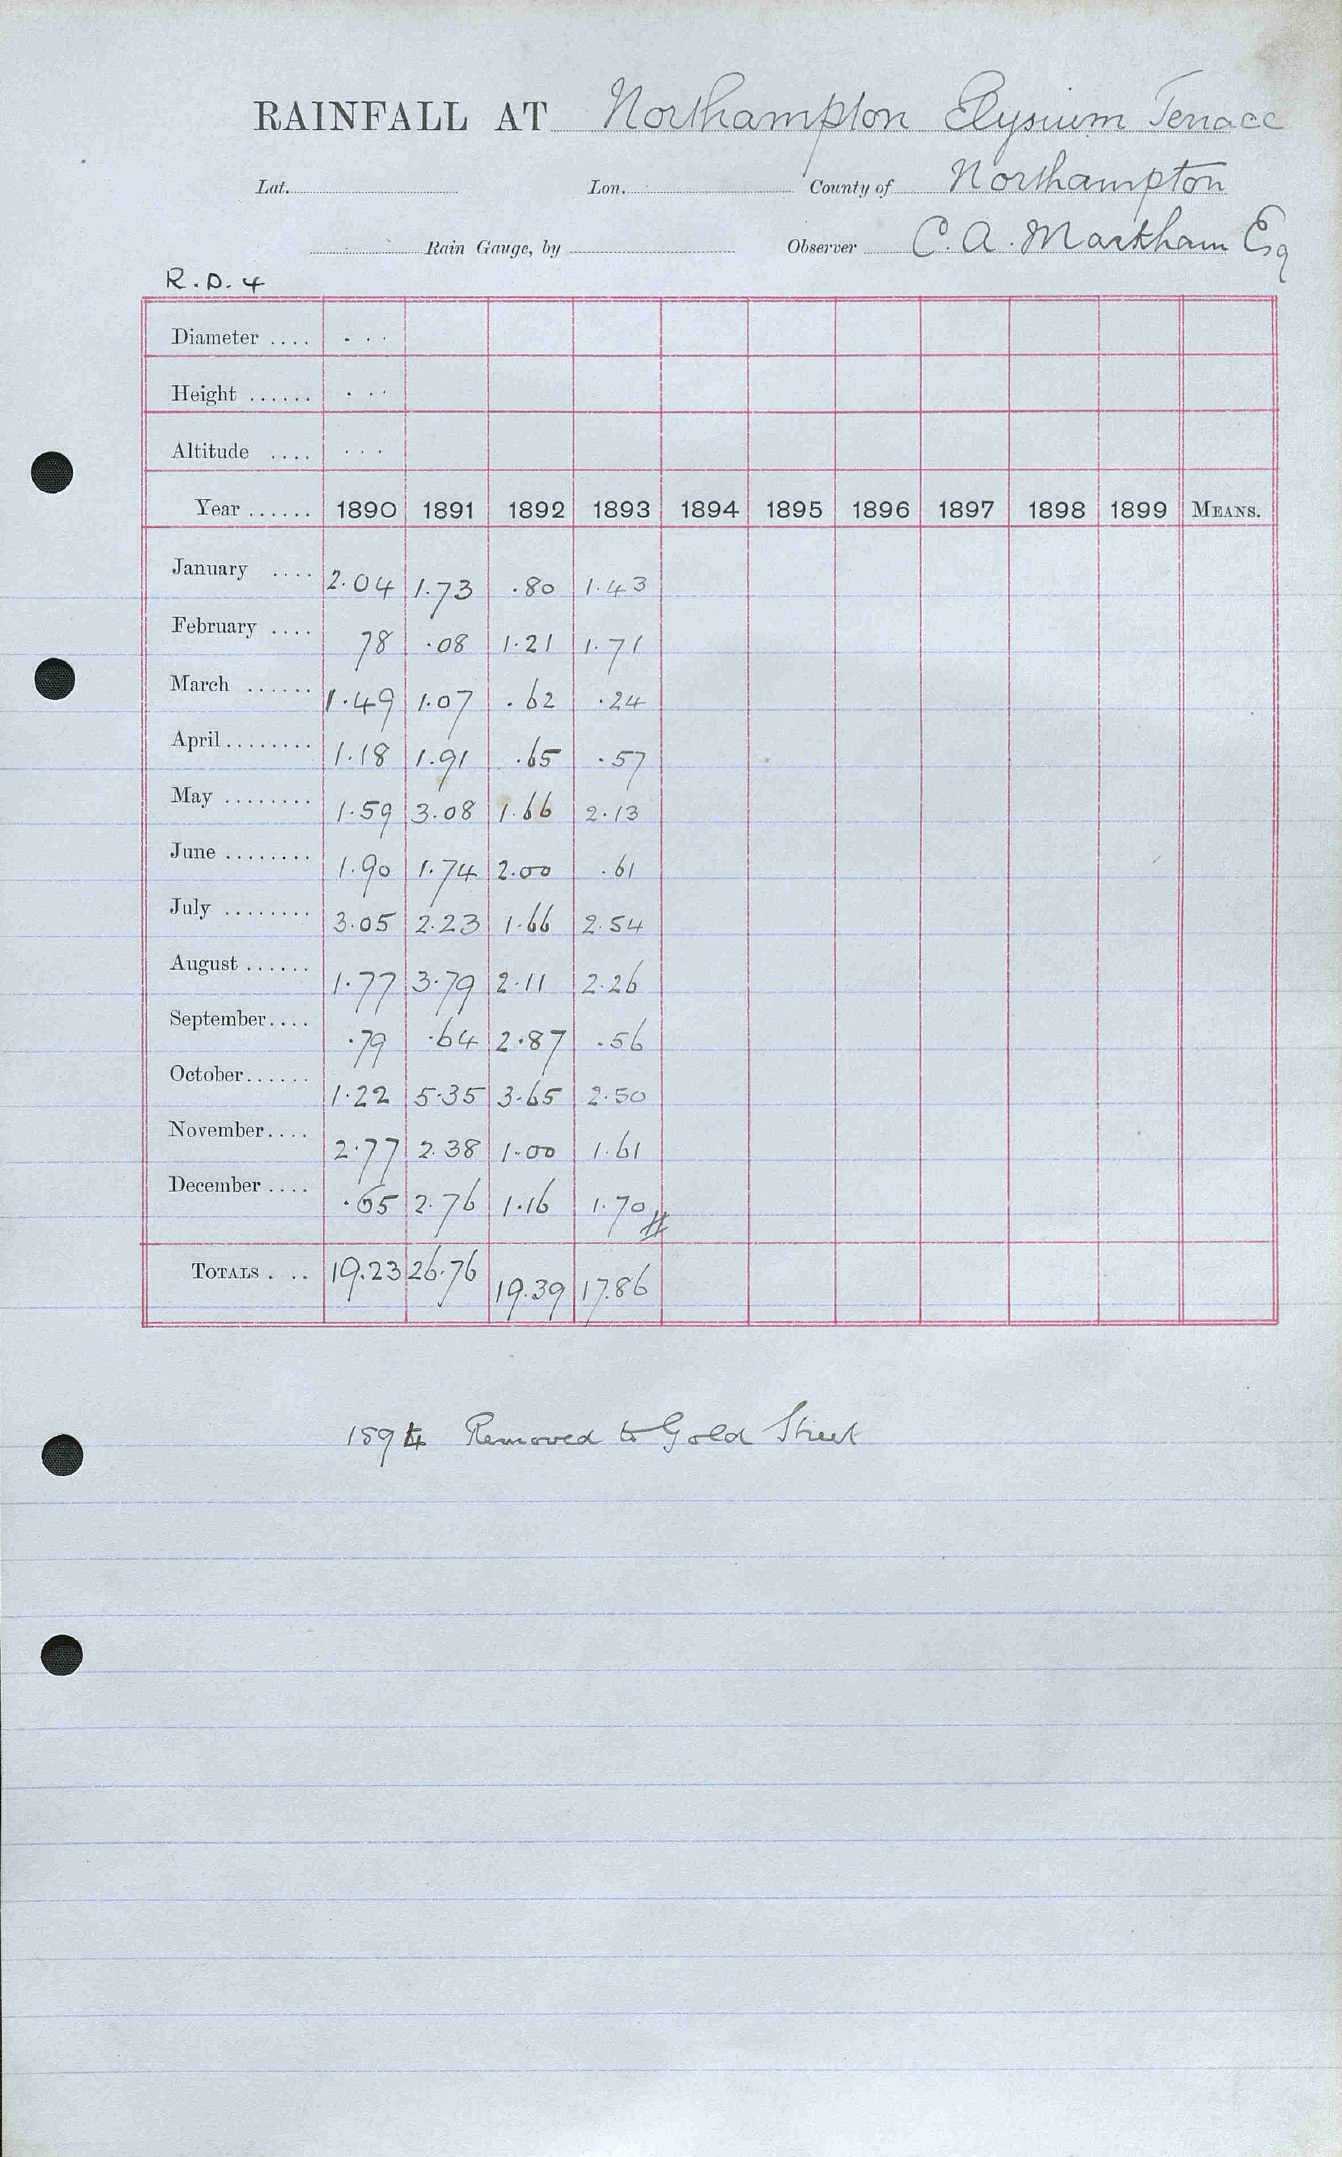 RAINFALL AT Northampton Elysium Terrace
Lat. Lon. County of Northampton
Rain Gauge, by Observer C. A. Markham Esq
R.D. 4
Diameter ....
Height ......
Altitude ....
Year ...... 1890 1891 1892 1893 1894 1895 1896 1897 1898 1899 MEANS.
January .... 2.04 1.73 .80 1.43
February .... 78 .08 1.21 1.71
March ...... 1.49 1.07 .62 .24
April ........ 1.18 1.91 .65 .57
May ........ 1.59 3.08 1.66 2.13
June ........ 1.90 1.74 2.00 .61
July ........ 3.05 2.23 1.66 2.54
August ...... 1.77 3.79 2.11 2.26
September.... .79 .64 2.87 .56
October...... 1.22 5.35 3.65 2.50
November.... 2.77 2.38 1.00 1.61
December .... .65 2.76 1.16 1.70
TOTALS .... 19.23 26.76 19.39 17.86
1894 Removed to Gold Street